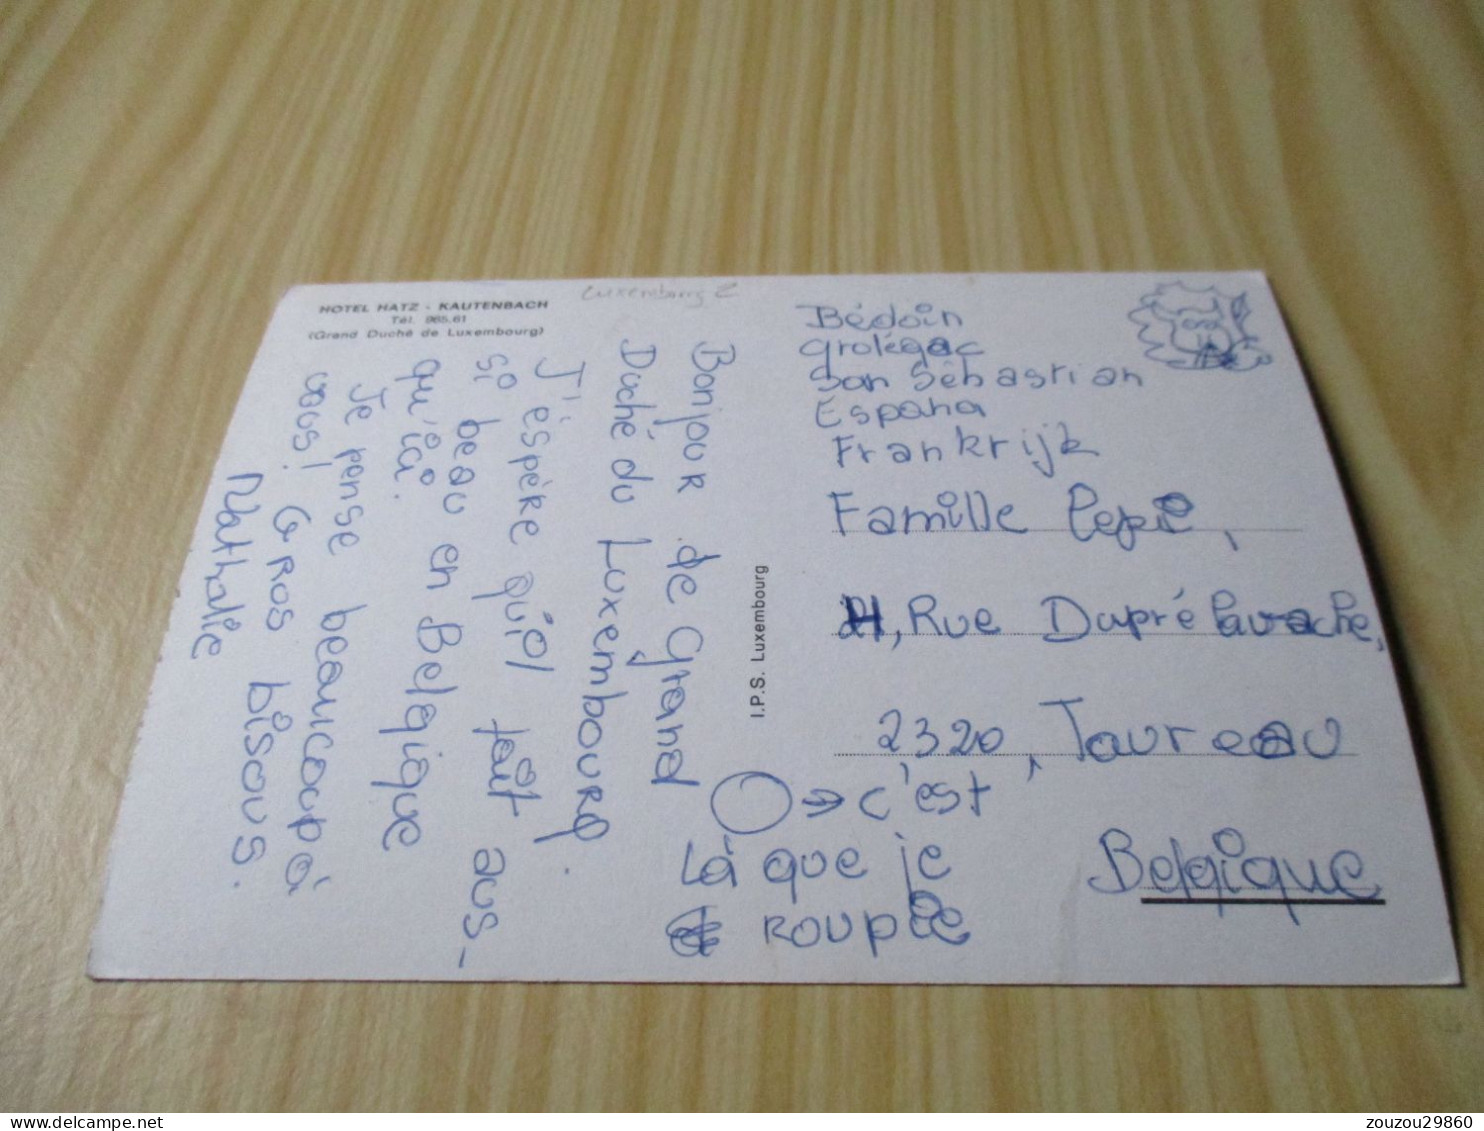 HOTEL HATZ - KAUTENBACH
Tél. 965.61
(Grand Duché de Luxembourg)
Luxembourg 2
Bonjour de Grand
Duché du Luxembourg.
J'éspère qu'il fait aus-
si beau en Belgique
qu'ici.
Je pense beaucoup à
vous! Gros bisous.
Nathalie
I.P.S. Luxembourg
Bédoin
Grolégac
San Sébastian
España
Frankrijk
Famille Lepie,
Rue Dupré Lavache,
2320, Taureau
Belgique
→ c'est
Là que je
roupie
delcampe.net
zouzou29860